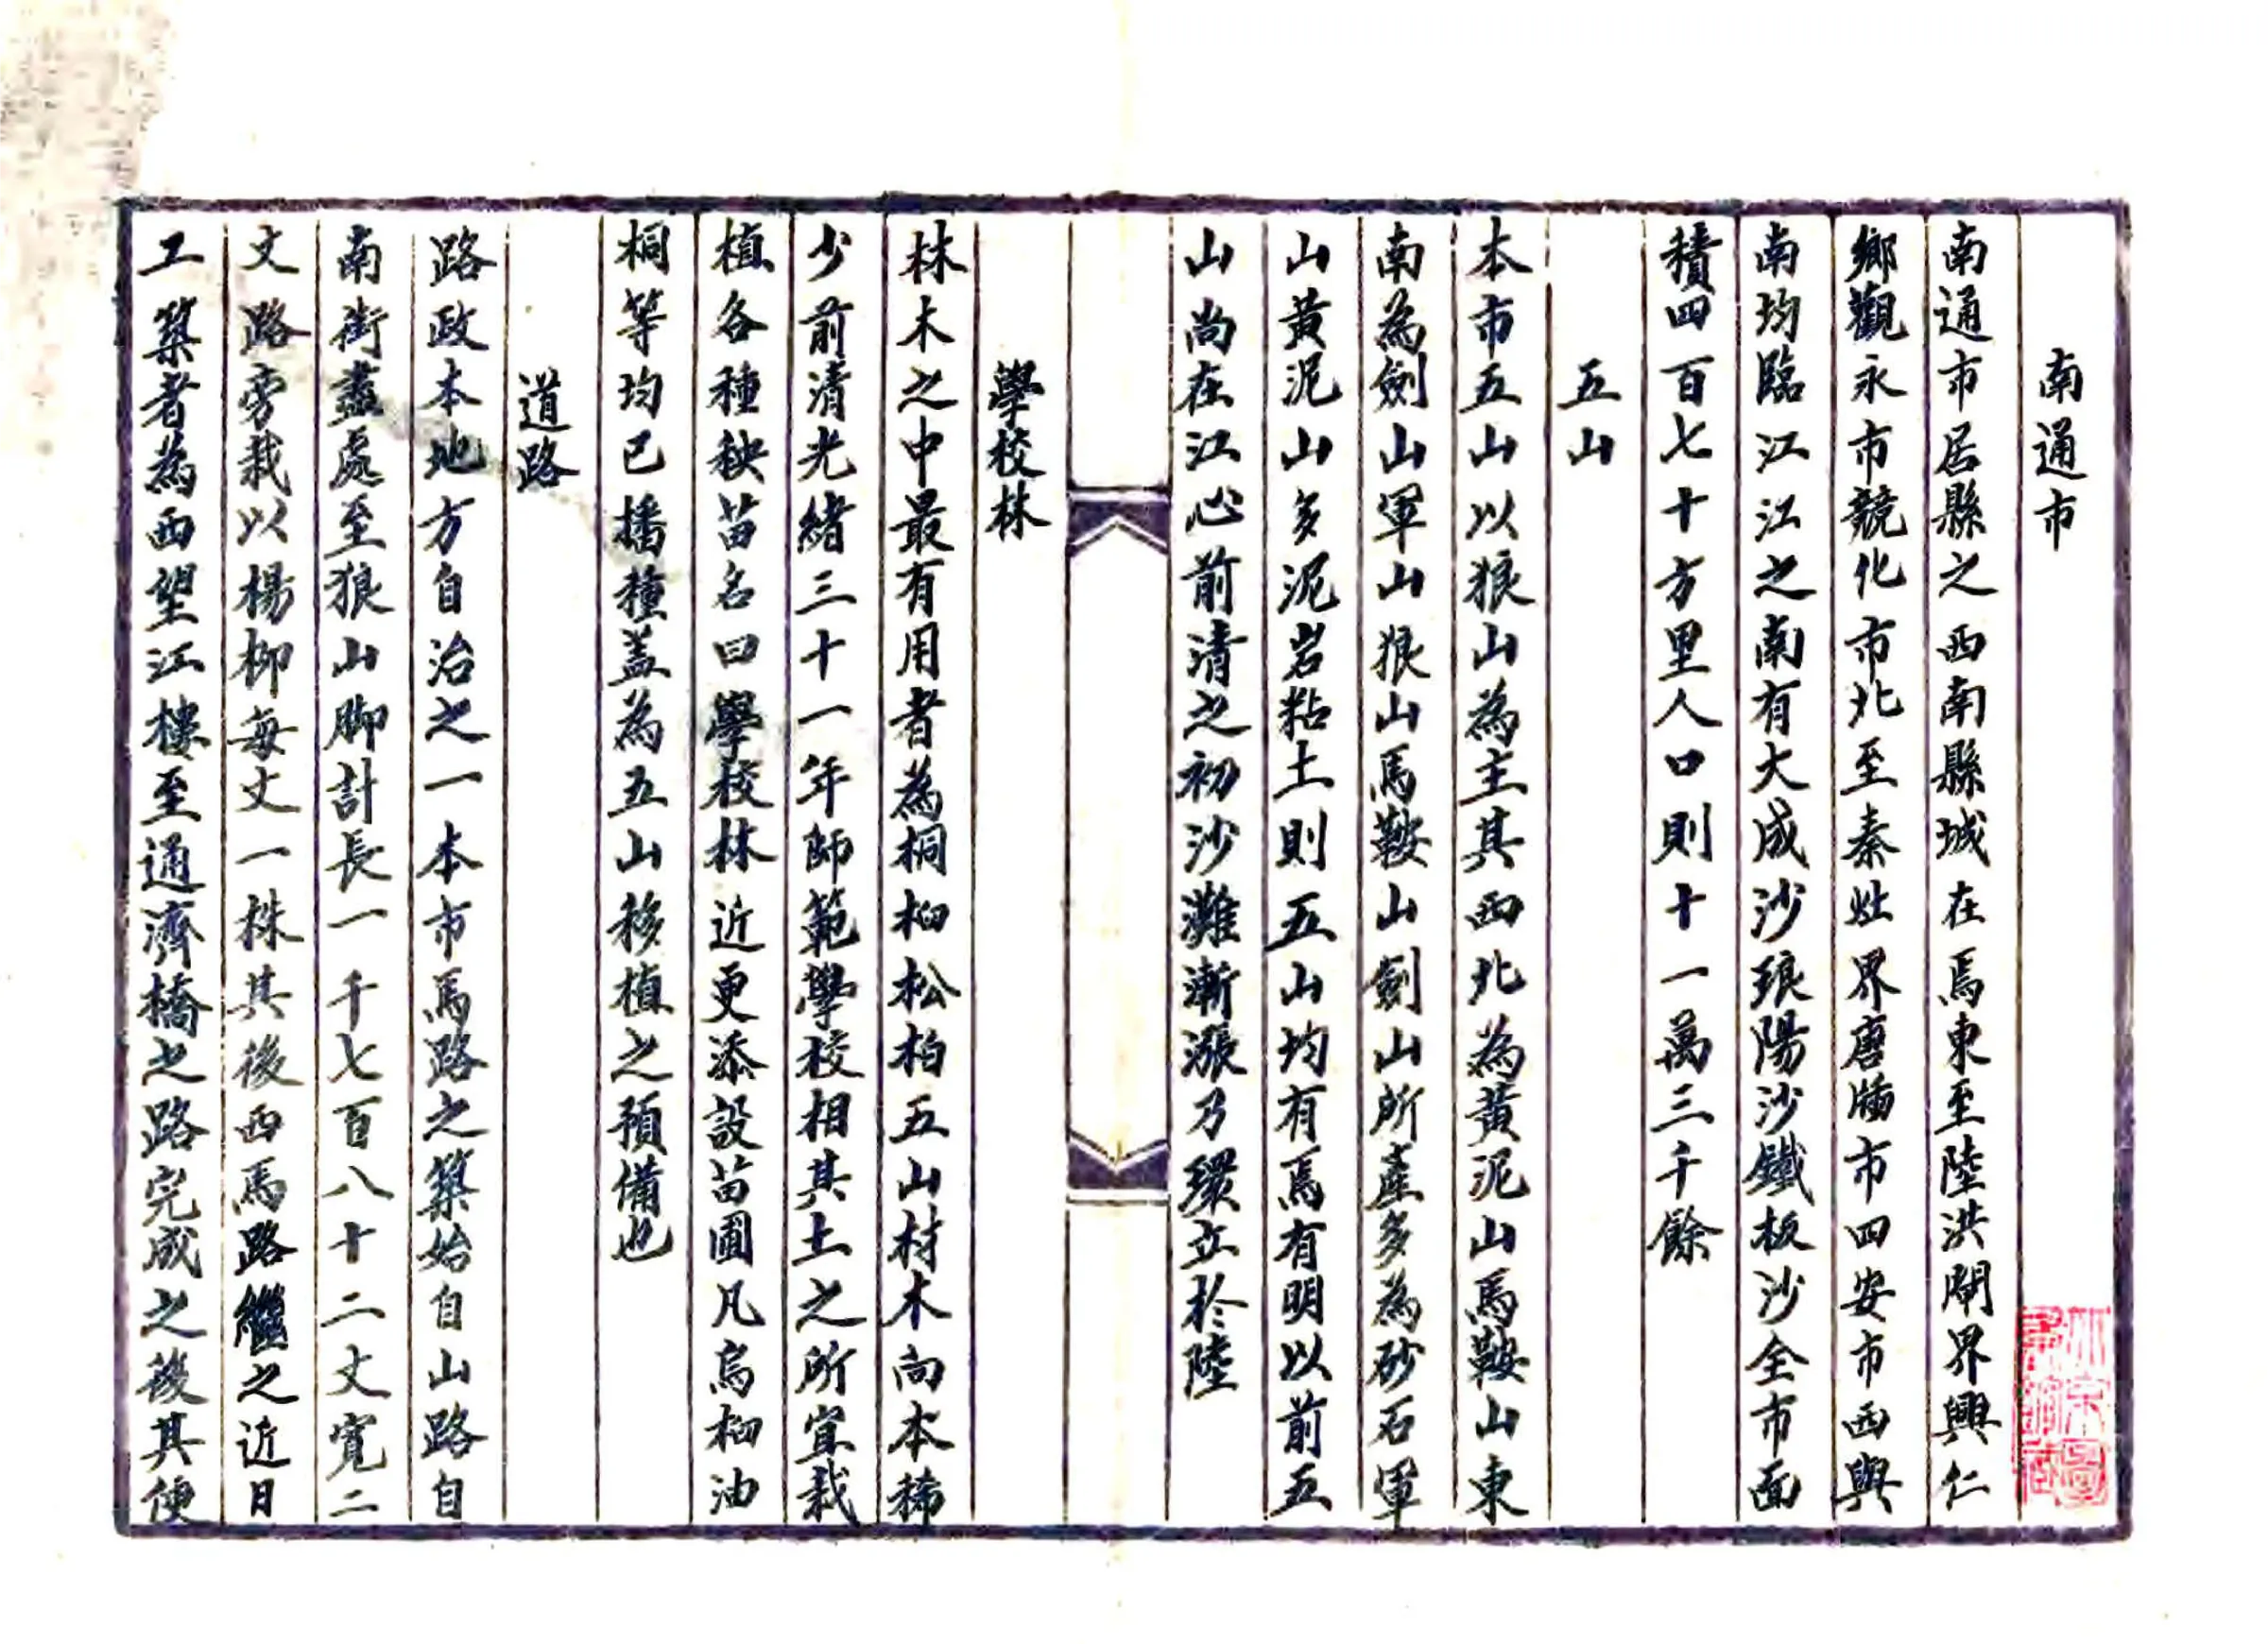 南通市
南通市居縣之西南縣城在焉東至陸洪閘界興仁
鄉觀永市競化市北至秦灶界唐牐市四安市西與
南均臨江江之南有大成沙琅陽沙鐵板沙全市面
積四百七十方里人口則十一萬三千餘
五山
本市五山以狼山為主其西北為黃泥山馬鞍山東
南為劍山軍山狼山馬鞍山劍山所產多為砂石軍
山黃泥山多泥岩粘土則五山均有焉有明以前五
山尚在江心前清之初沙灘漸漲乃環立於陸
學校林
林木之中最有用者為桐桕松柏五山材木向本稀
少前清光緒三十一年師範學校相其土之所宜栽
植各種秧苗名曰學校林近更添設苗圃凡烏桕油
桐等均已播種蓋為五山移植之預備也
道路
路政本地方自治之一本市馬路之築始自山路自
南街盡處至狼山脚計長一千七百八十二丈寬二
丈路旁栽以楊柳每丈一株其後西馬路繼之近日
工築者為西望江樓至通濟橋之路完成之後其便
京圖